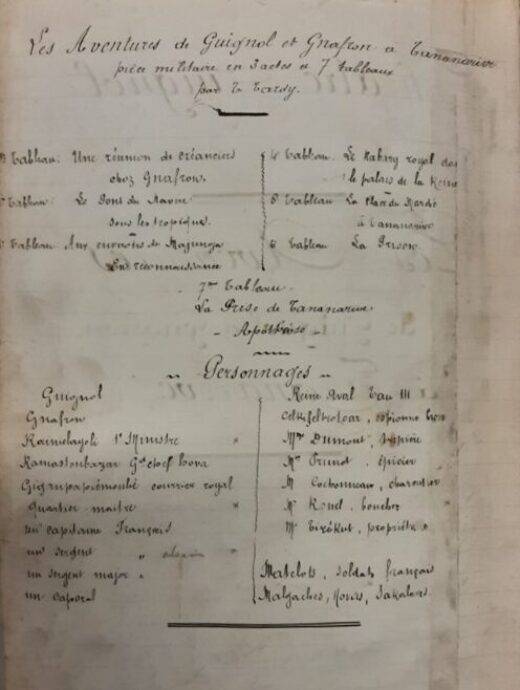 Les Aventures de Guignol et Gnafron à Tananarive
pièce militaire en 3 actes et 7 tableaux
par T. Tardy.
Tableau: Une réunion de créanciers
chez Gnafron.
Tableau: Le Pont du Navire
sous les tropiques.
Tableau: Aux environs de Majunga
En reconnaissance
4 Tableau. Le Kabary royal dans
le palais de la Reine
5 Tableau La Place du Marché
à Tananarive
6 Tableau La Prison.
7me Tableau.
La Prise de Tananarive
- Apothéose -
Personnages
Guignol
Gnafron
1er Ministre
Gd chef hova
courrier royal
Quartier maître
un capitaine Français
un sergent "
un sergent major "
un caporal
Reine Aval Tau III
espionne hova
Mme Dumont, 
Mr Prunot, épicier
Mr Cochonneau, charcutier
Mr Rouel, boucher
Mr propriétre
Matelots, soldats français
Malgaches, Hovas, Sakalaves.